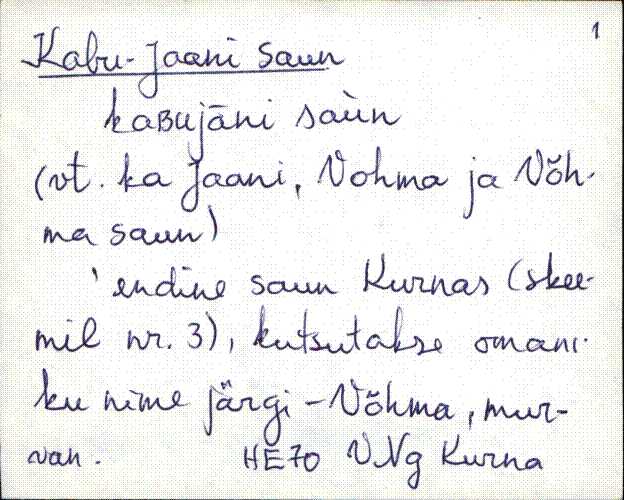 1
Kabu-Jaani saun
kaʙujāni saùn
(vt. ka Jaani, Vohma ja Võh-
ma saun)
'endine saun Kurnas (skee-
mil nr. 3), kutsutakse omani-
ku nime järgi - Võhma, mur-
van.
HE70 VNg Kurna